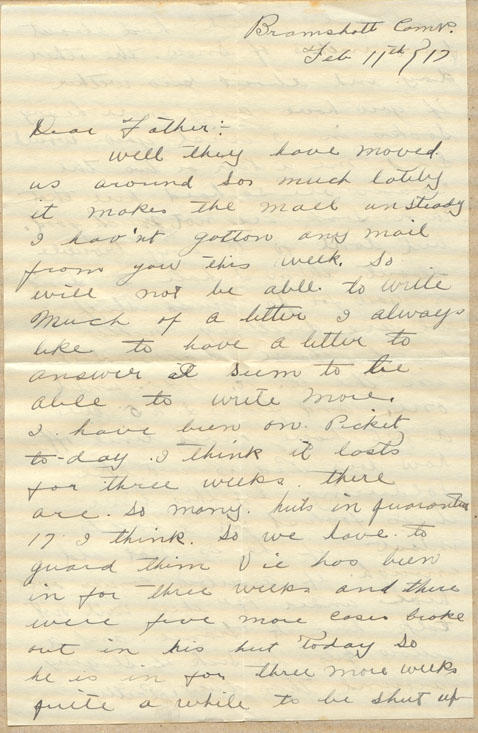 Bramshott Camp.
Feb 11th / 17
Dear Father:-
well they have moved
us around so much lately
it makes the mail unsteady
I hav'nt gotton any mail
from you this week. So
will not be able to write
Much of a letter I always
like to have a letter to
answer it seem to be
able to write more.
I have been on Picket
to-day. I think it lasts
for three weeks. there
are. so many. huts in quarantine
17 I think. So we have to
guard them Vic has been
in for three weeks and there
were five more cases broke
out in his hut today so
he is in for three more weeks
quite a while to be shut up